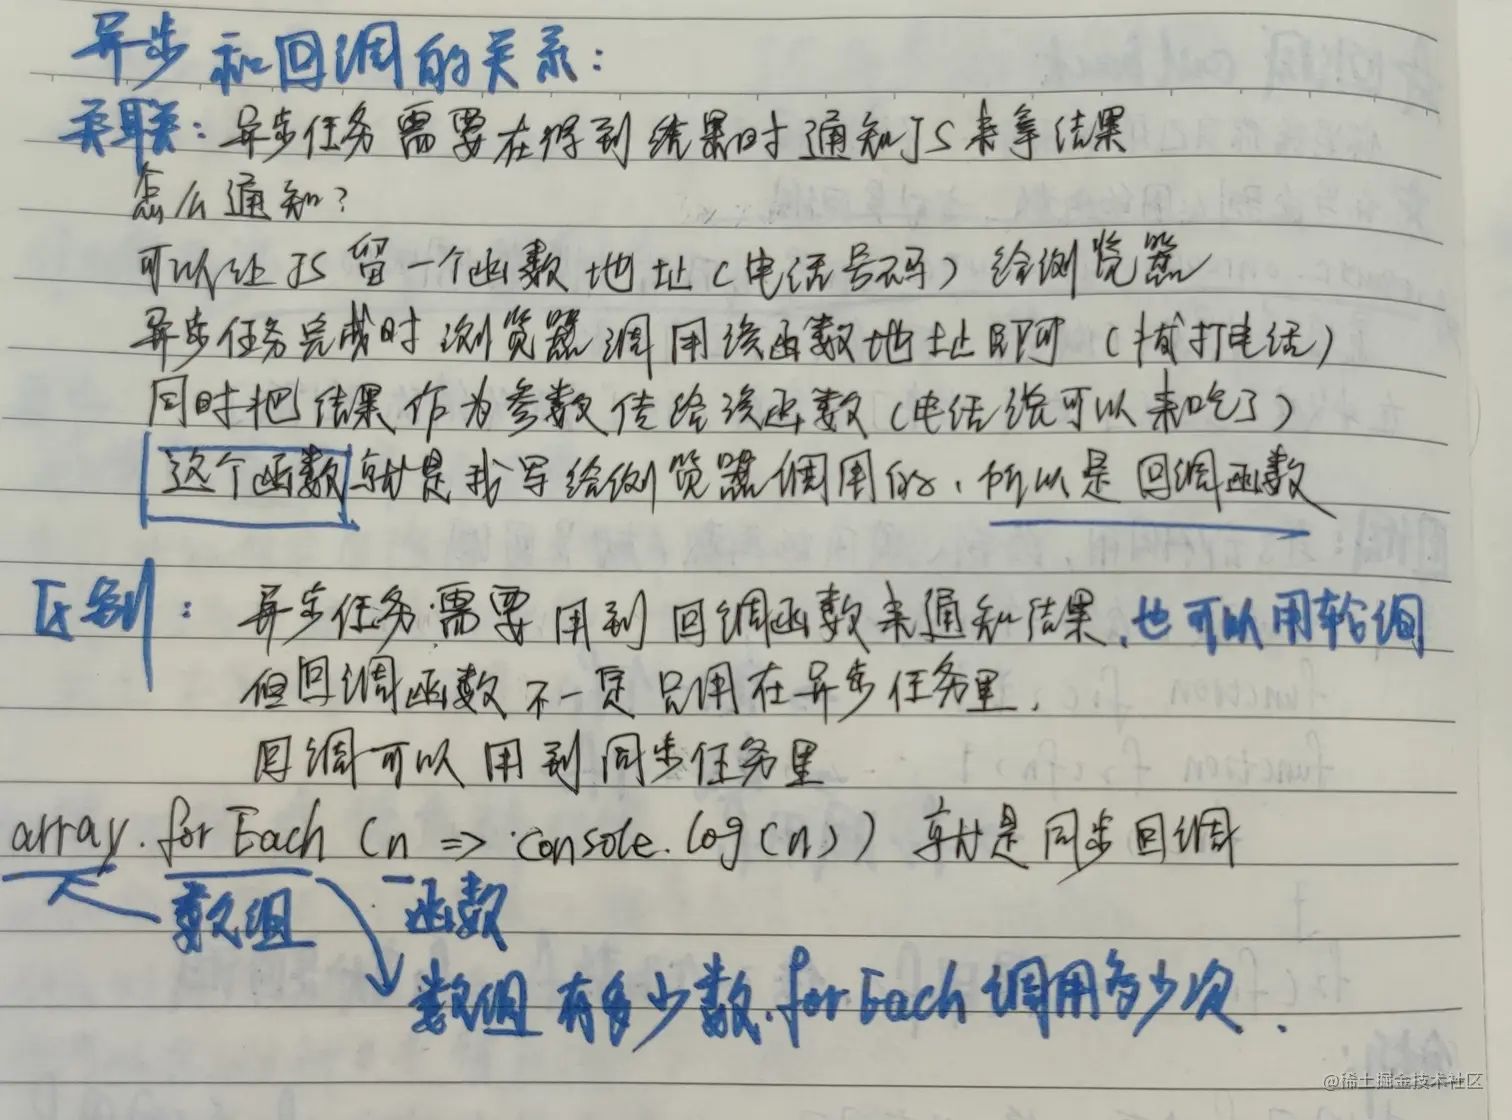 异步和回调的关系:
关联:异步任务需要在得到结果时通知JS来拿结果
怎么通知?
可以让JS留一个函数地址(电话号码)给浏览器
异步任务完成时浏览器调用该函数地址即可(拨打电话)
同时把结果作为参数传给该函数(电话说可以来吃了)
这个函数就是我写给浏览器调用的,所以是回调函数
区别:异步任务需要用到回调函数来通知结果,也可以用轮询
但回调函数不一定只用在异步任务里,
回调可以用到同步任务里
array.forEach(n => console.log(n))就是同步回调
数组 一函数
数组有多少数,forEach调用多少次.
@稀土掘金技术社区